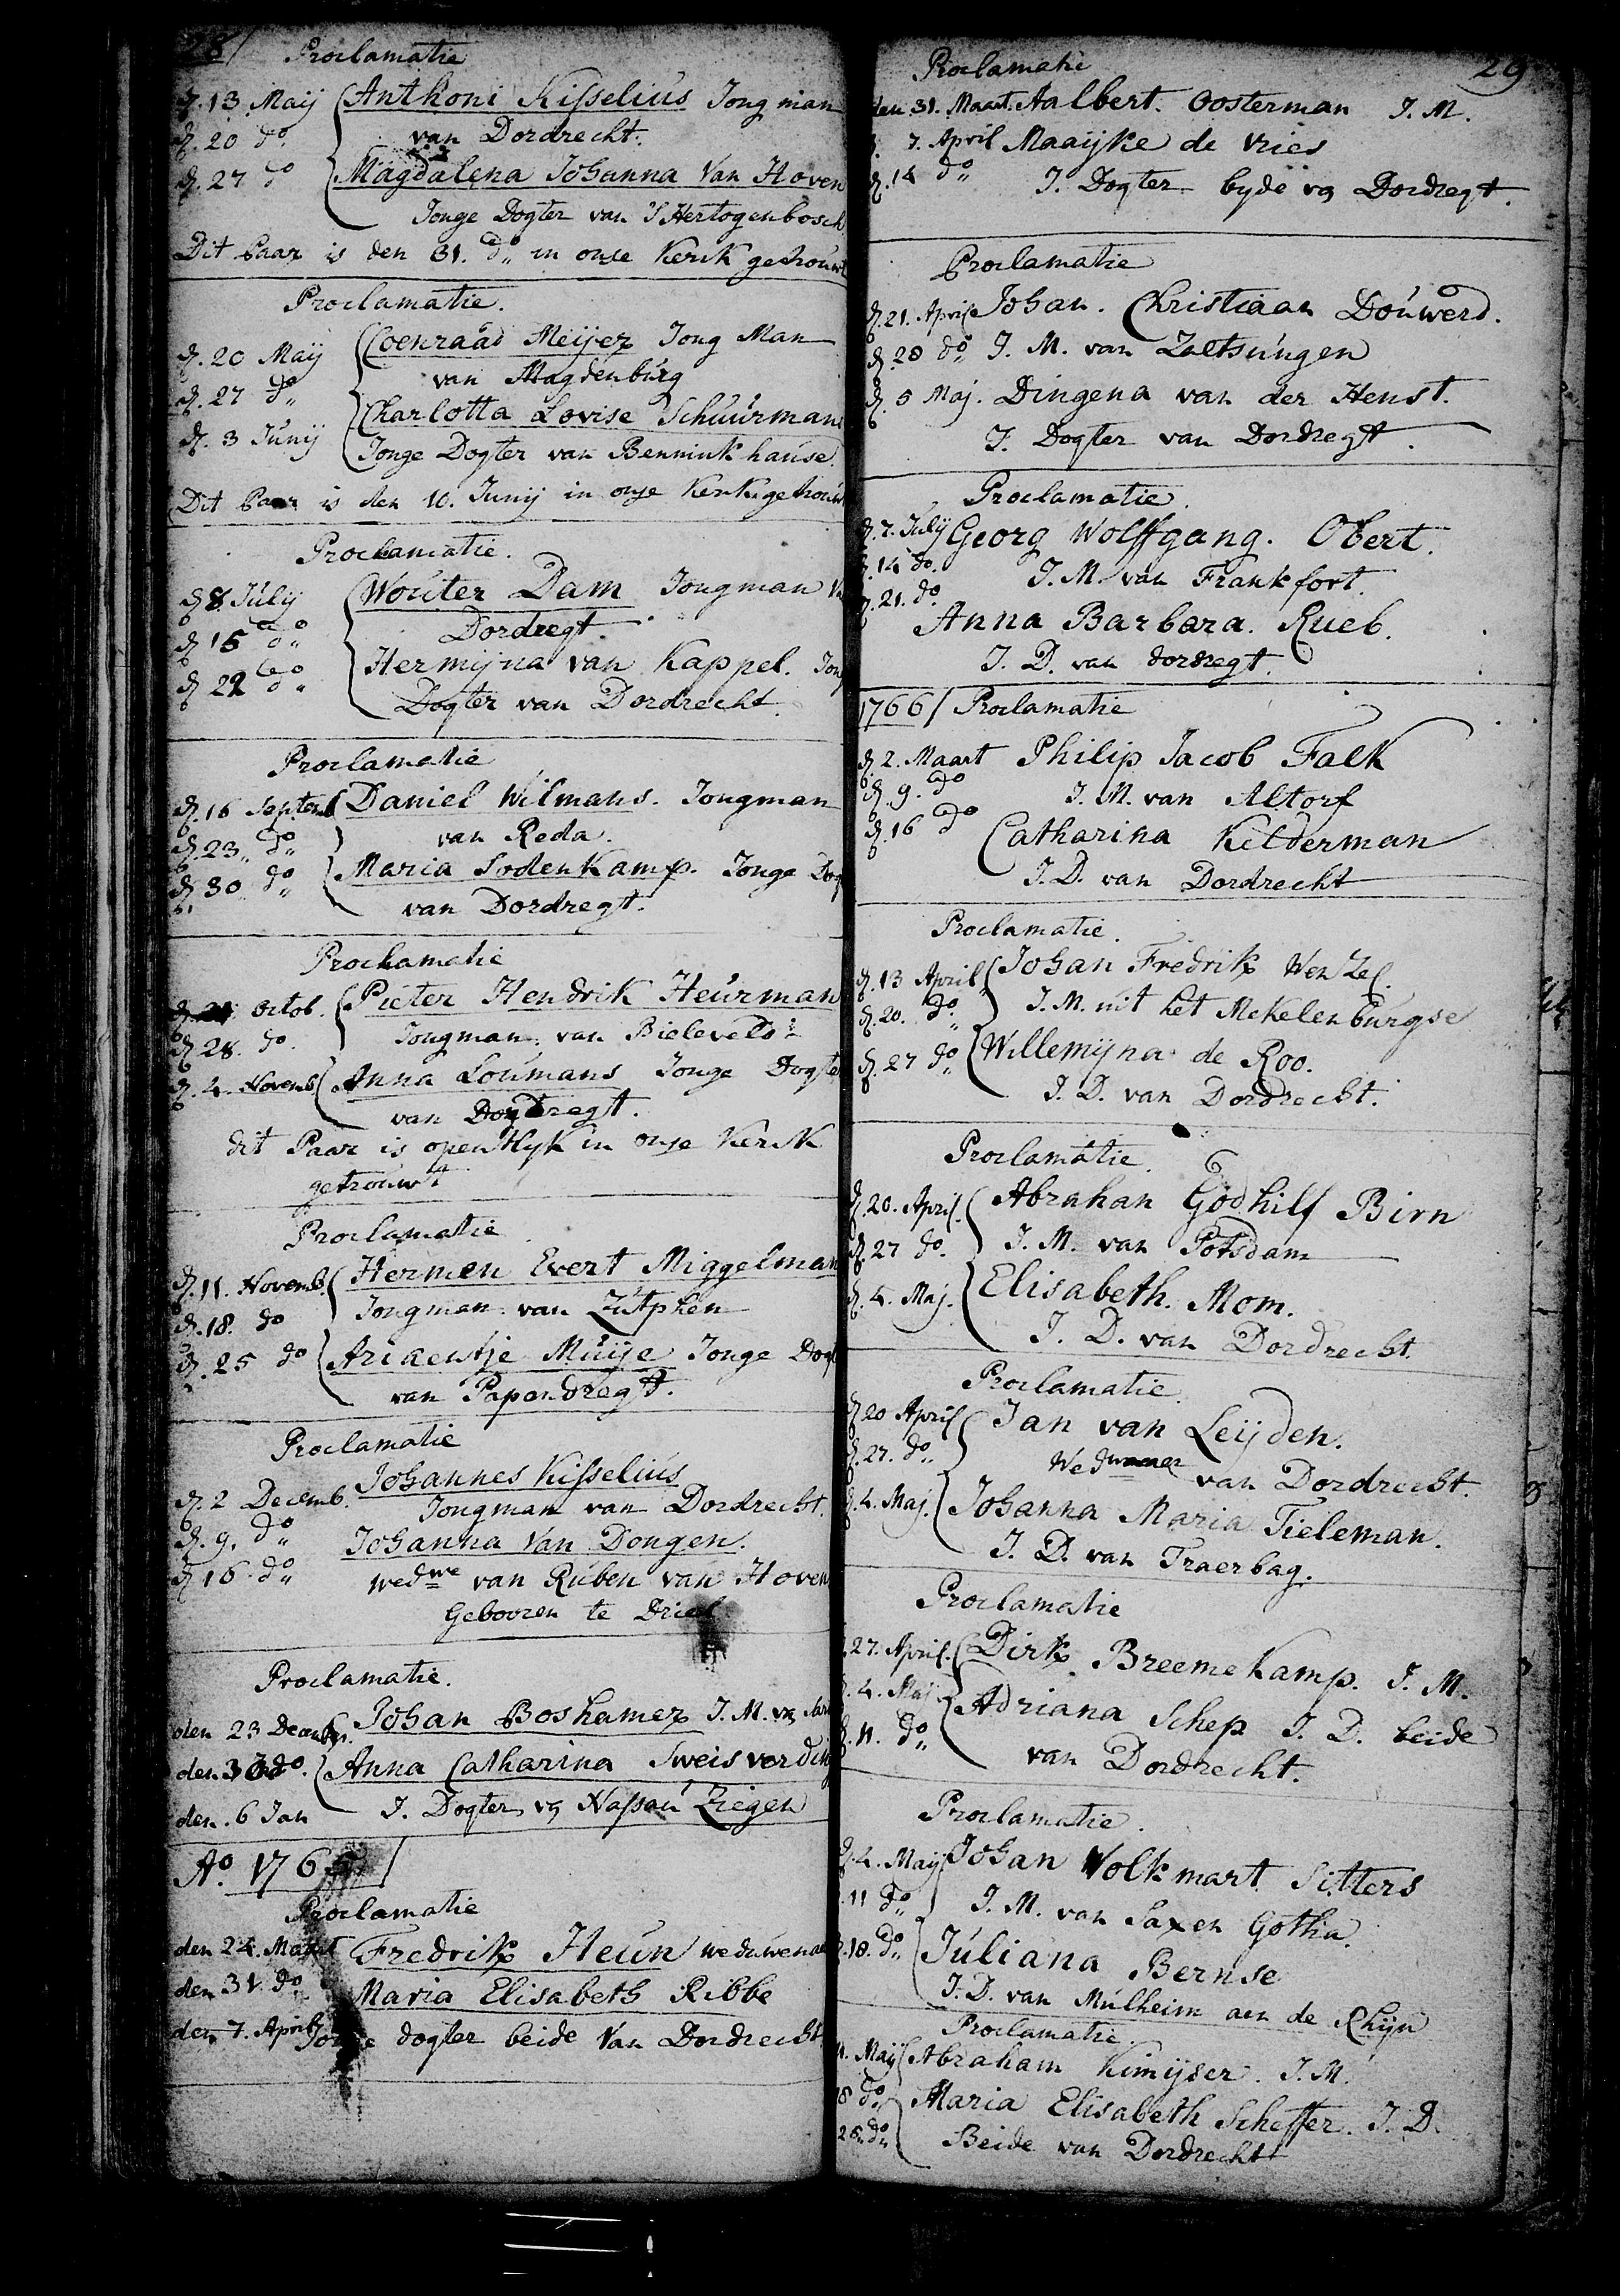 28/
Proclamatie
d. 13 Maij Anthoni Kisselius Jong man
d. 20 do. van Dordrecht.
d. 27 do Magdalena Johanna Van Hoven
Jonge Dogter van 's Hertogenbosch
Dit Paar is den 31. do in onse Kerk getrouwt
Proclamatie.
d. 20 Maij Coenraad Meijer Jong Man
d. 27 do van Magdenburg
d. 3 Junij Charlotta Lovise Schuurmans
Jonge Dogter van Bennink hause.
Dit Paar is den 10. Junij in onse Kerk getrouwt
Proclamatie.
d 8 Julij Wouter Dam Jongman
d 15 do Dordregt.
d 22 do Hermijna van Kappel. Jong
Dogter van Dordrecht.
Proclamatie
d. 16 Septemb Daniel Wilmans. Jongman
d. 23. do van Reda.
d. 30 do Maria Sodenkamp. Jonge Dog
van Dordregt.
Proclamatie
d. 21 Octob. Pieter Hendrik Heurman
d. 28. do. Jongman. van Bieleveld
d. 4. Novemb Anna Loumans Jonge Dogter
van Dordregt.
dit Paar is opentlyk in onse Kerk
getrouwt
Proclamatie
d. 11. Novemb. Hermen Evert Miggelman
d. 18. do Jongman van Zutphen
d. 25 do Ariaentje Muije Jonge Dogt
van Papendregt.
Proclamatie
Johannes Kisselius
d. 2 Decemb. Jongman van Dordrecht.
d. 9. do Johanna Van Dongen.
d 16 do wedwe van Ruben van Hoven
Gebooren te Driel
Proclamatie.
den 23 Decembr. Johan Boshamer J. M. vn
den 30 do. Anna Catharina Sweisverding
den. 6 Jan J. Dogter vn Nassau Ziegen
Ao. 1765/
Proclamatie
den 24. Maart Fredrik Heun weduwenaar
den 31 do Maria Elisabeth Ribbe
den 7. April Jonge dogter beide Van Dordrecht
29
Proclamatie
den 31. Maart. Aalbert. Oosterman J. M.
7. April Maaijke de Vries
d. 14 do J. Dogter byde vn Dordregt.
Proclamatie
d. 21. April Johan. Christiaan Douwerd.
d. 28 do J. M. van Zaltsungen
d. 5 Maj. Dingena van der Henst.
J. Dogter van Dordregt.
Proclamatie
d. 7. Julij Georg Wolffgang. Obert.
d. 14 do. J. M. van Frankfort.
d. 21. do.
Anna Barbara. Rueb.
J. D. van dordregt.
1766/ Proclamatie
d. 2. Maart Philip Jacob Falk
d. 9. do J. M. van Altorf
d. 16 do Catharina Kelderman
J. D. van Dordrecht
Proclamatie.
d. 13 April Johan Fredrik Wenzel.
d. 20. do J. M. uit het Mekelenburgse
d. 27 do Willemijna de Roo.
J. D. van Dordrecht.
Proclamatie.
d. 20. April. Abrahan Godhilf Birn
d. 27 do. J. M. van Potsdam
d. 4. Maj. Elisabeth. Mom.
J. D. van Dordrecht.
Proclamatie.
d. 20 April Jan van Leijden.
d. 27. do Wedwenaer van Dordrecht.
d. 4. Maj. Johanna Maria Tieleman.
J. D. van Traerbag.
Proclamatie
27. April. Dirk Breemekamp. J. M.
d. 4. Maij Adriana Schep J. D. beide
d. 11. do van Dordrecht.
Proclamatie.
d. 4. Maij Johan Volkmart Sitters
11 do J. M. van Saxen Gotha.
18. do Juliana Bernse
J. D. van Mulheim aen de Rhijn
Proclamatie.
11. Maij Abraham Kimijser. J. M.
18 do Maria Elisabeth Scheffer. J. D.
25. do Beide van Dordrecht